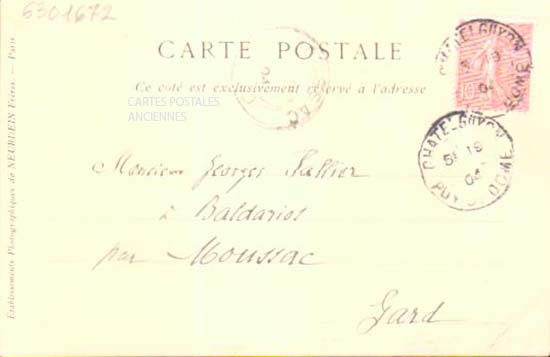 6301672
CARTE POSTALE
Ce côté est exclusivement réservé à l'adresse
CARTES POSTALES
ANCIENNES
CHATELGUYON
DOME
CHATELGUYON
04
PUY DOME
Monsieur Georges
à Baldarios
par Moussac
Gard
Etablissements Photographiques de NEURDEIN Frères. — Paris